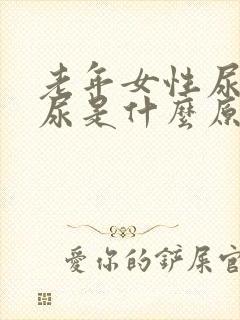 老年女性尿
尿是什麼原
愛你的鏟屎官